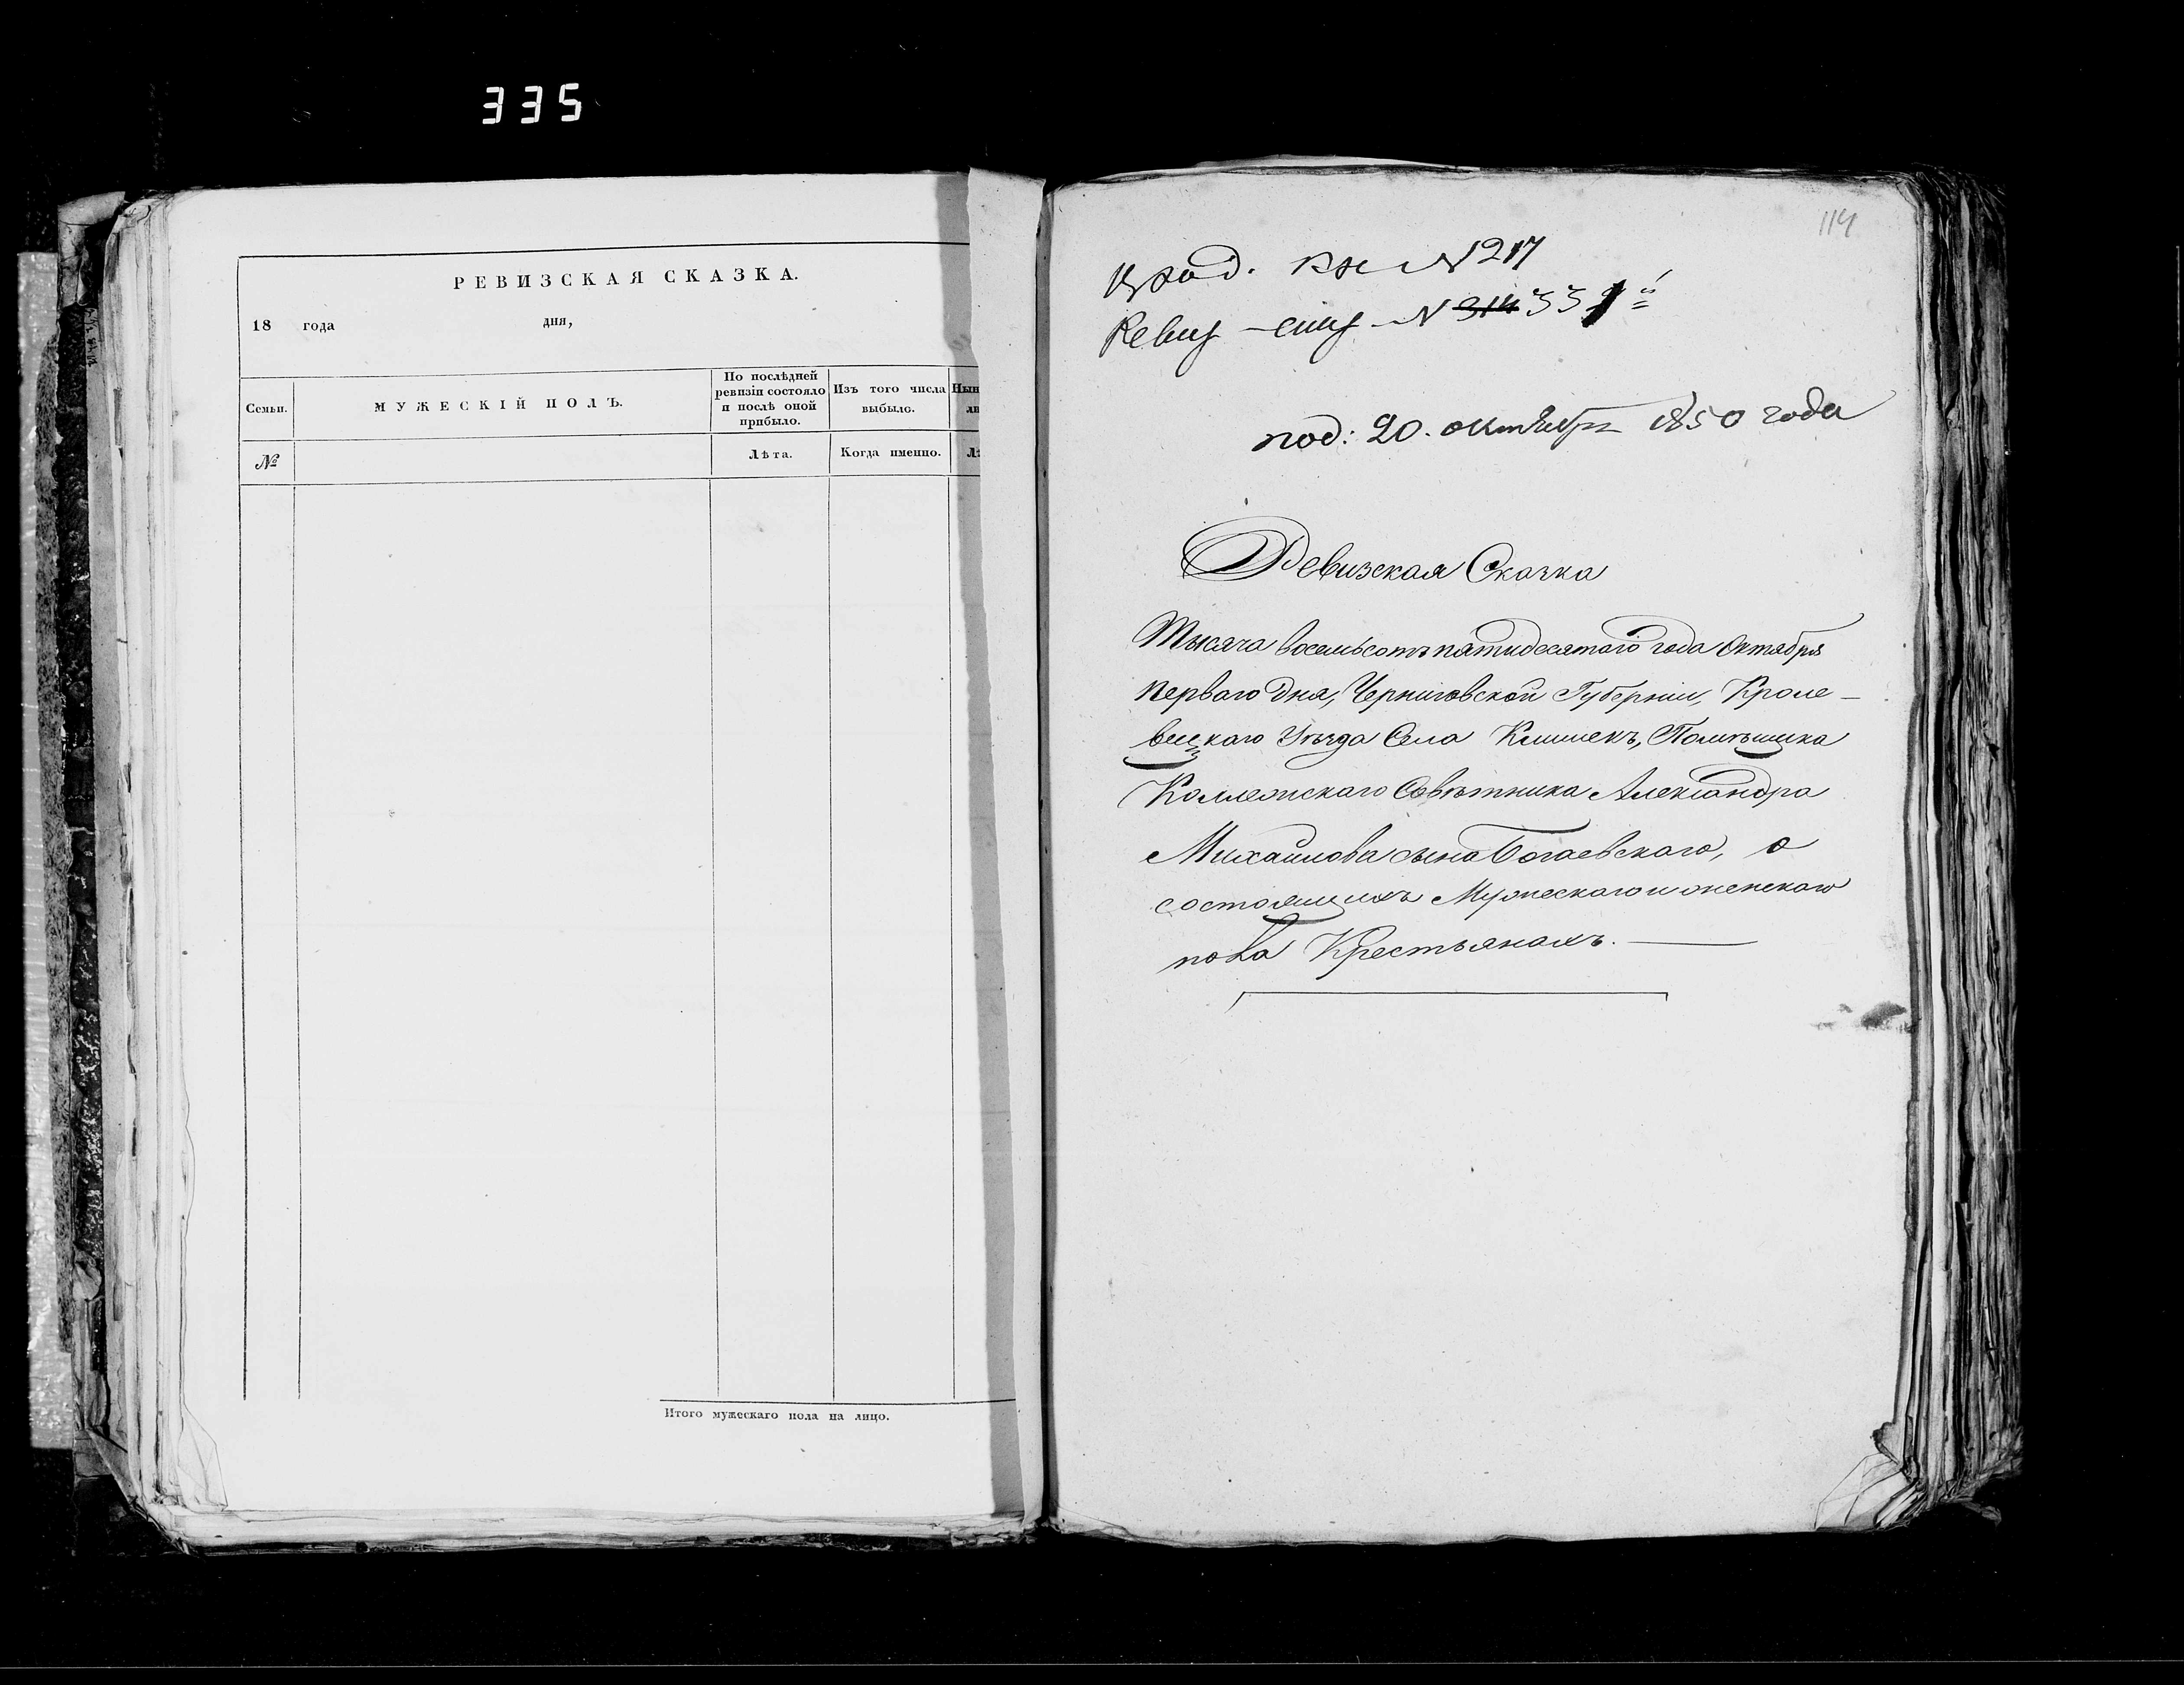 335
РЕВИЗСКАЯ СКАЗКА.
18 года дня,
Семьи.
МУЖЕСКІЙ ПОЛЪ.
По послѣдней
ревизіи состояло
и послѣ оной
прибыло.
Изъ того числа
выбыло.
Нын
ли
№
Лѣта.
Когда именно.
Лѣ
Итого мужескаго пола на лицо.
114
№ 217
Ревиз № 314 33
под: 20. октября 1850 года
Ревизская Сказка
Тысяча восемьсотъ пятидесятаго года Октября
перваго дня, Черниговской Губерніи, Кроле-
вецкаго Уѣзда Села Клишекъ, Помѣщика
Коллежскаго Совѣтника Александра
Михайлова сына Богаевскаго, о
состоящихъ Мужескаго и женскаго
пола Крестьянахъ.